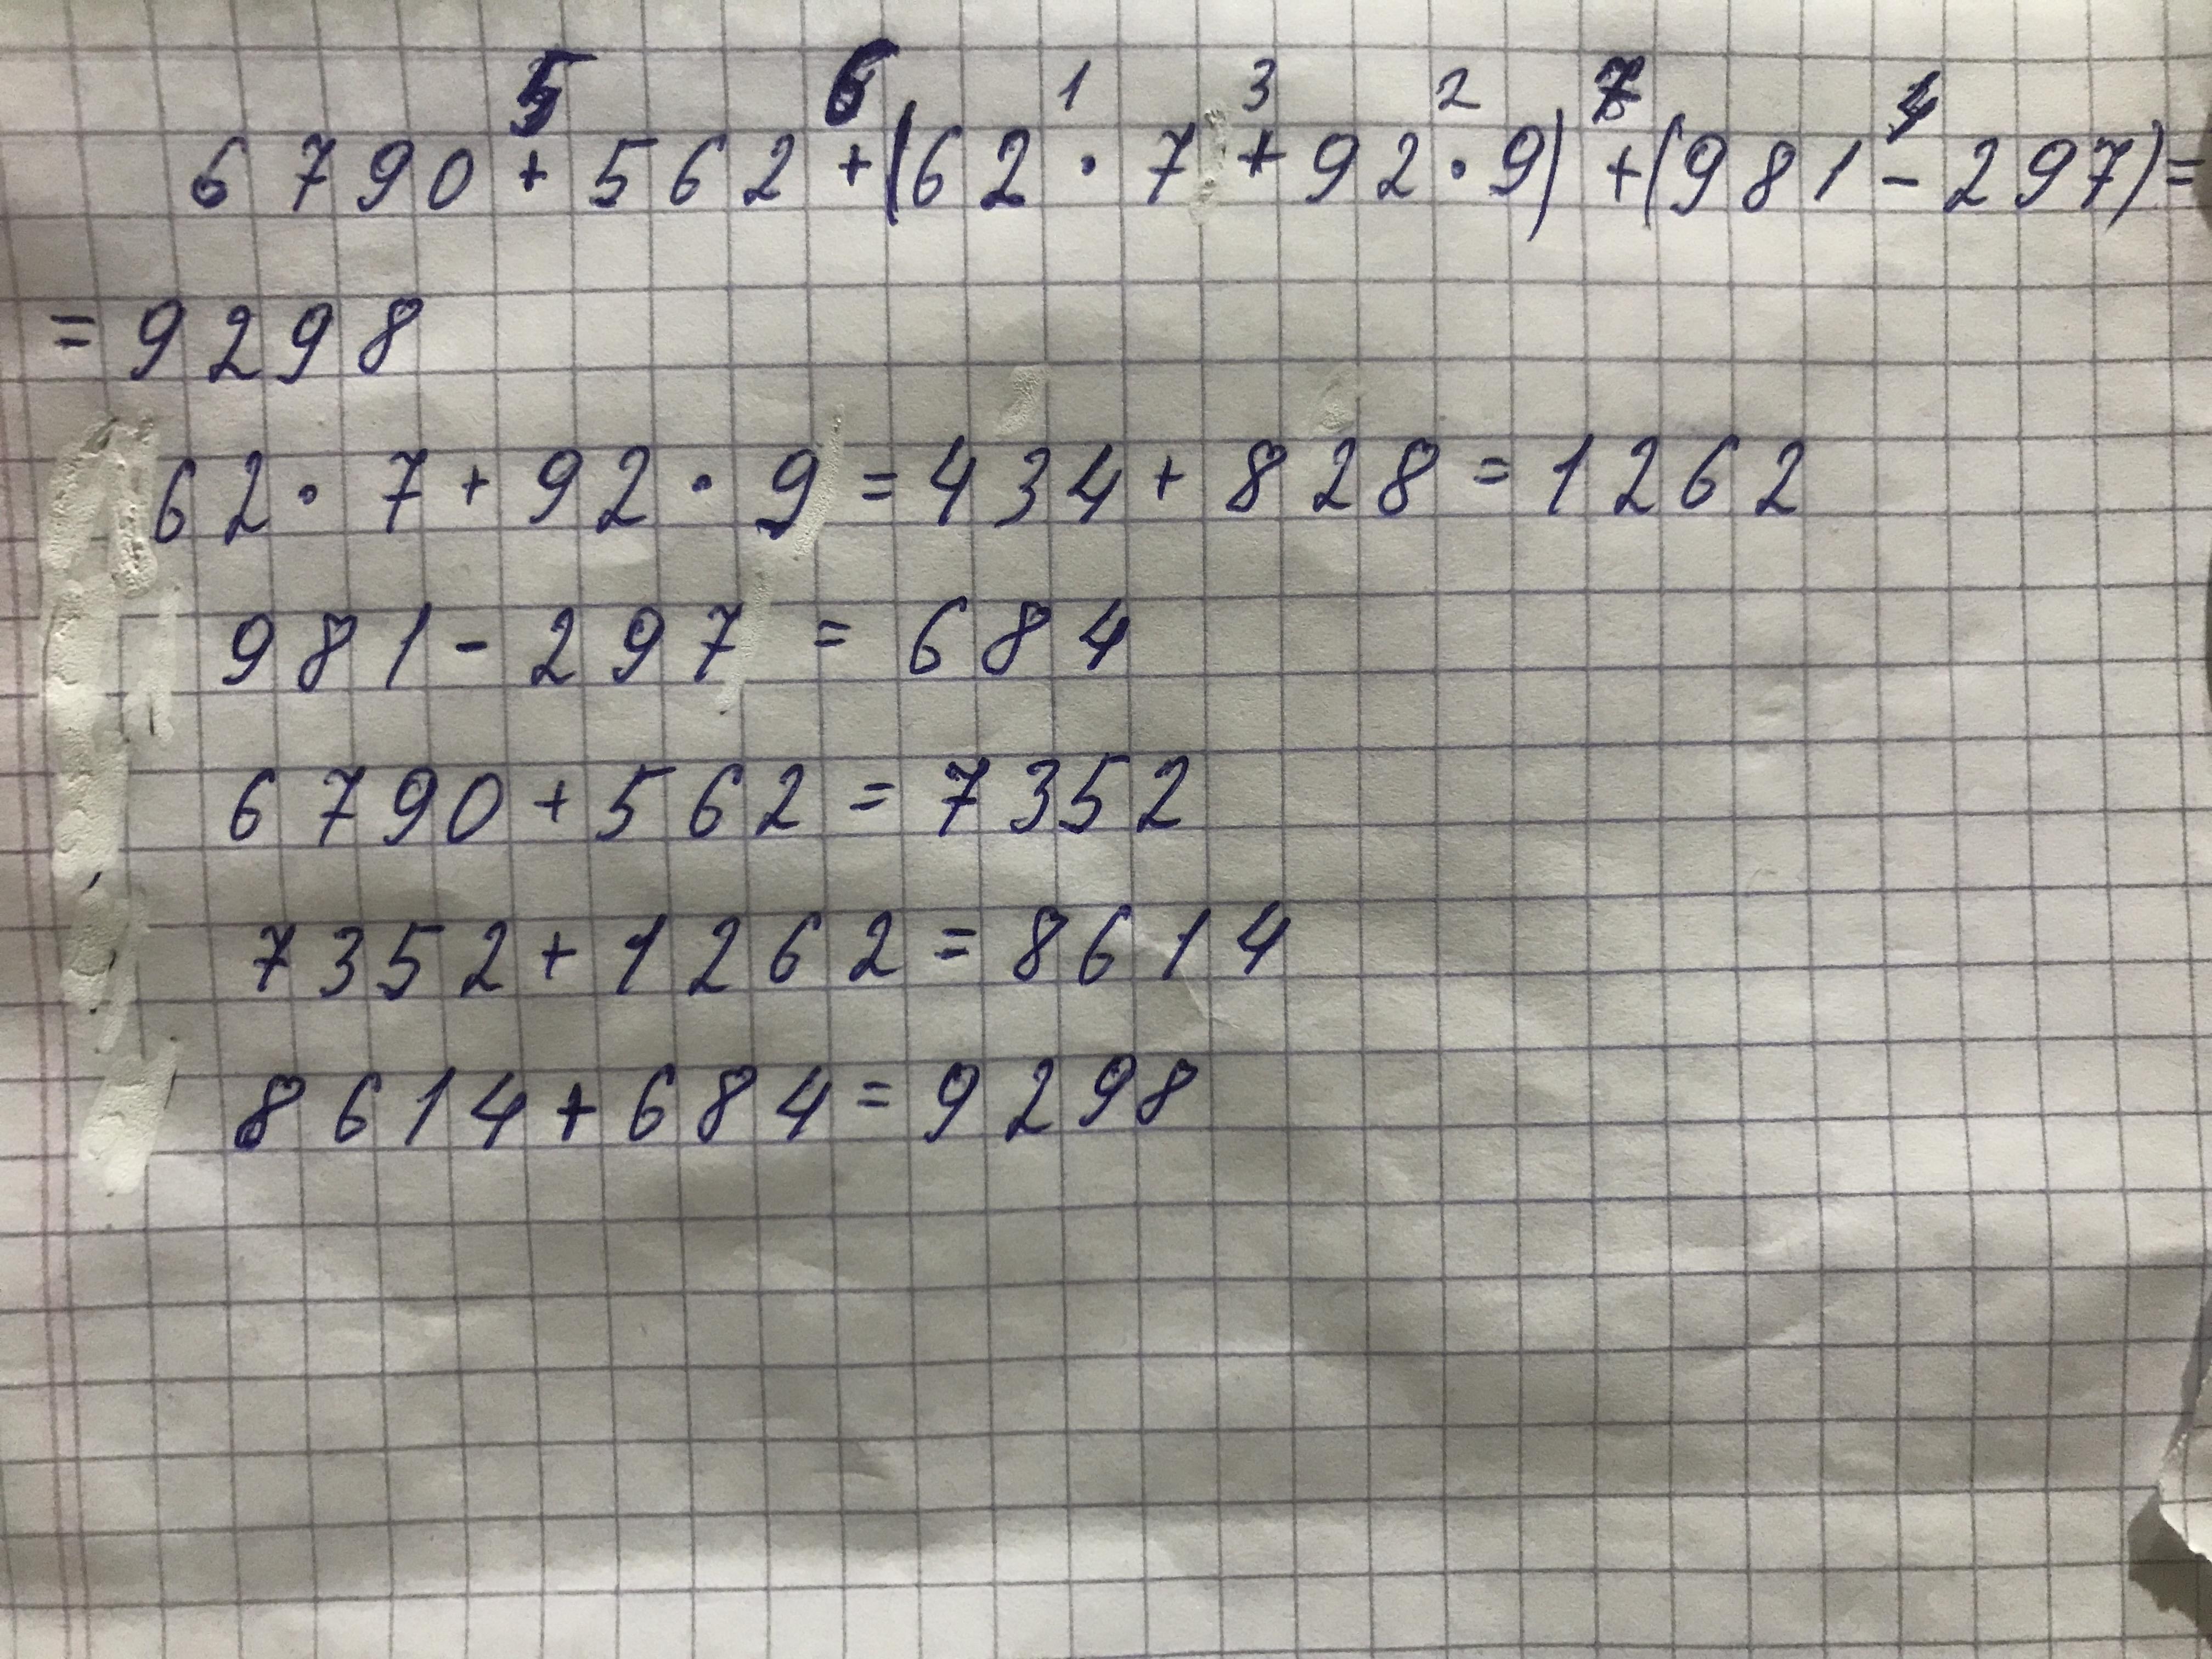 5 6 1 3 2 7 4
6790+562+(62·7+92·9)+(981-297)=
=9298
62·7+92·9=434+828=1262
981-297=684
6790+562=7352
7352+1262=8614
8614+684=9298